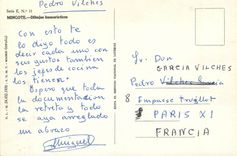 Pedro Vilches
Serie E. N.º 11
MINGOTE.—Dibujos humorísticos
Con esto te
lo digo todo es
decir cada uno con
sus gustos también
los jefes de cocina
los tienen.
Espero que toda
la documentación
la retrete y todo
se aya arreglado
un abrazo
Miguel
Sr. Don
GARCIA VILCHES
Pedro Vilches
8 Impasse Truillot
PARIS XI
FRANCIA